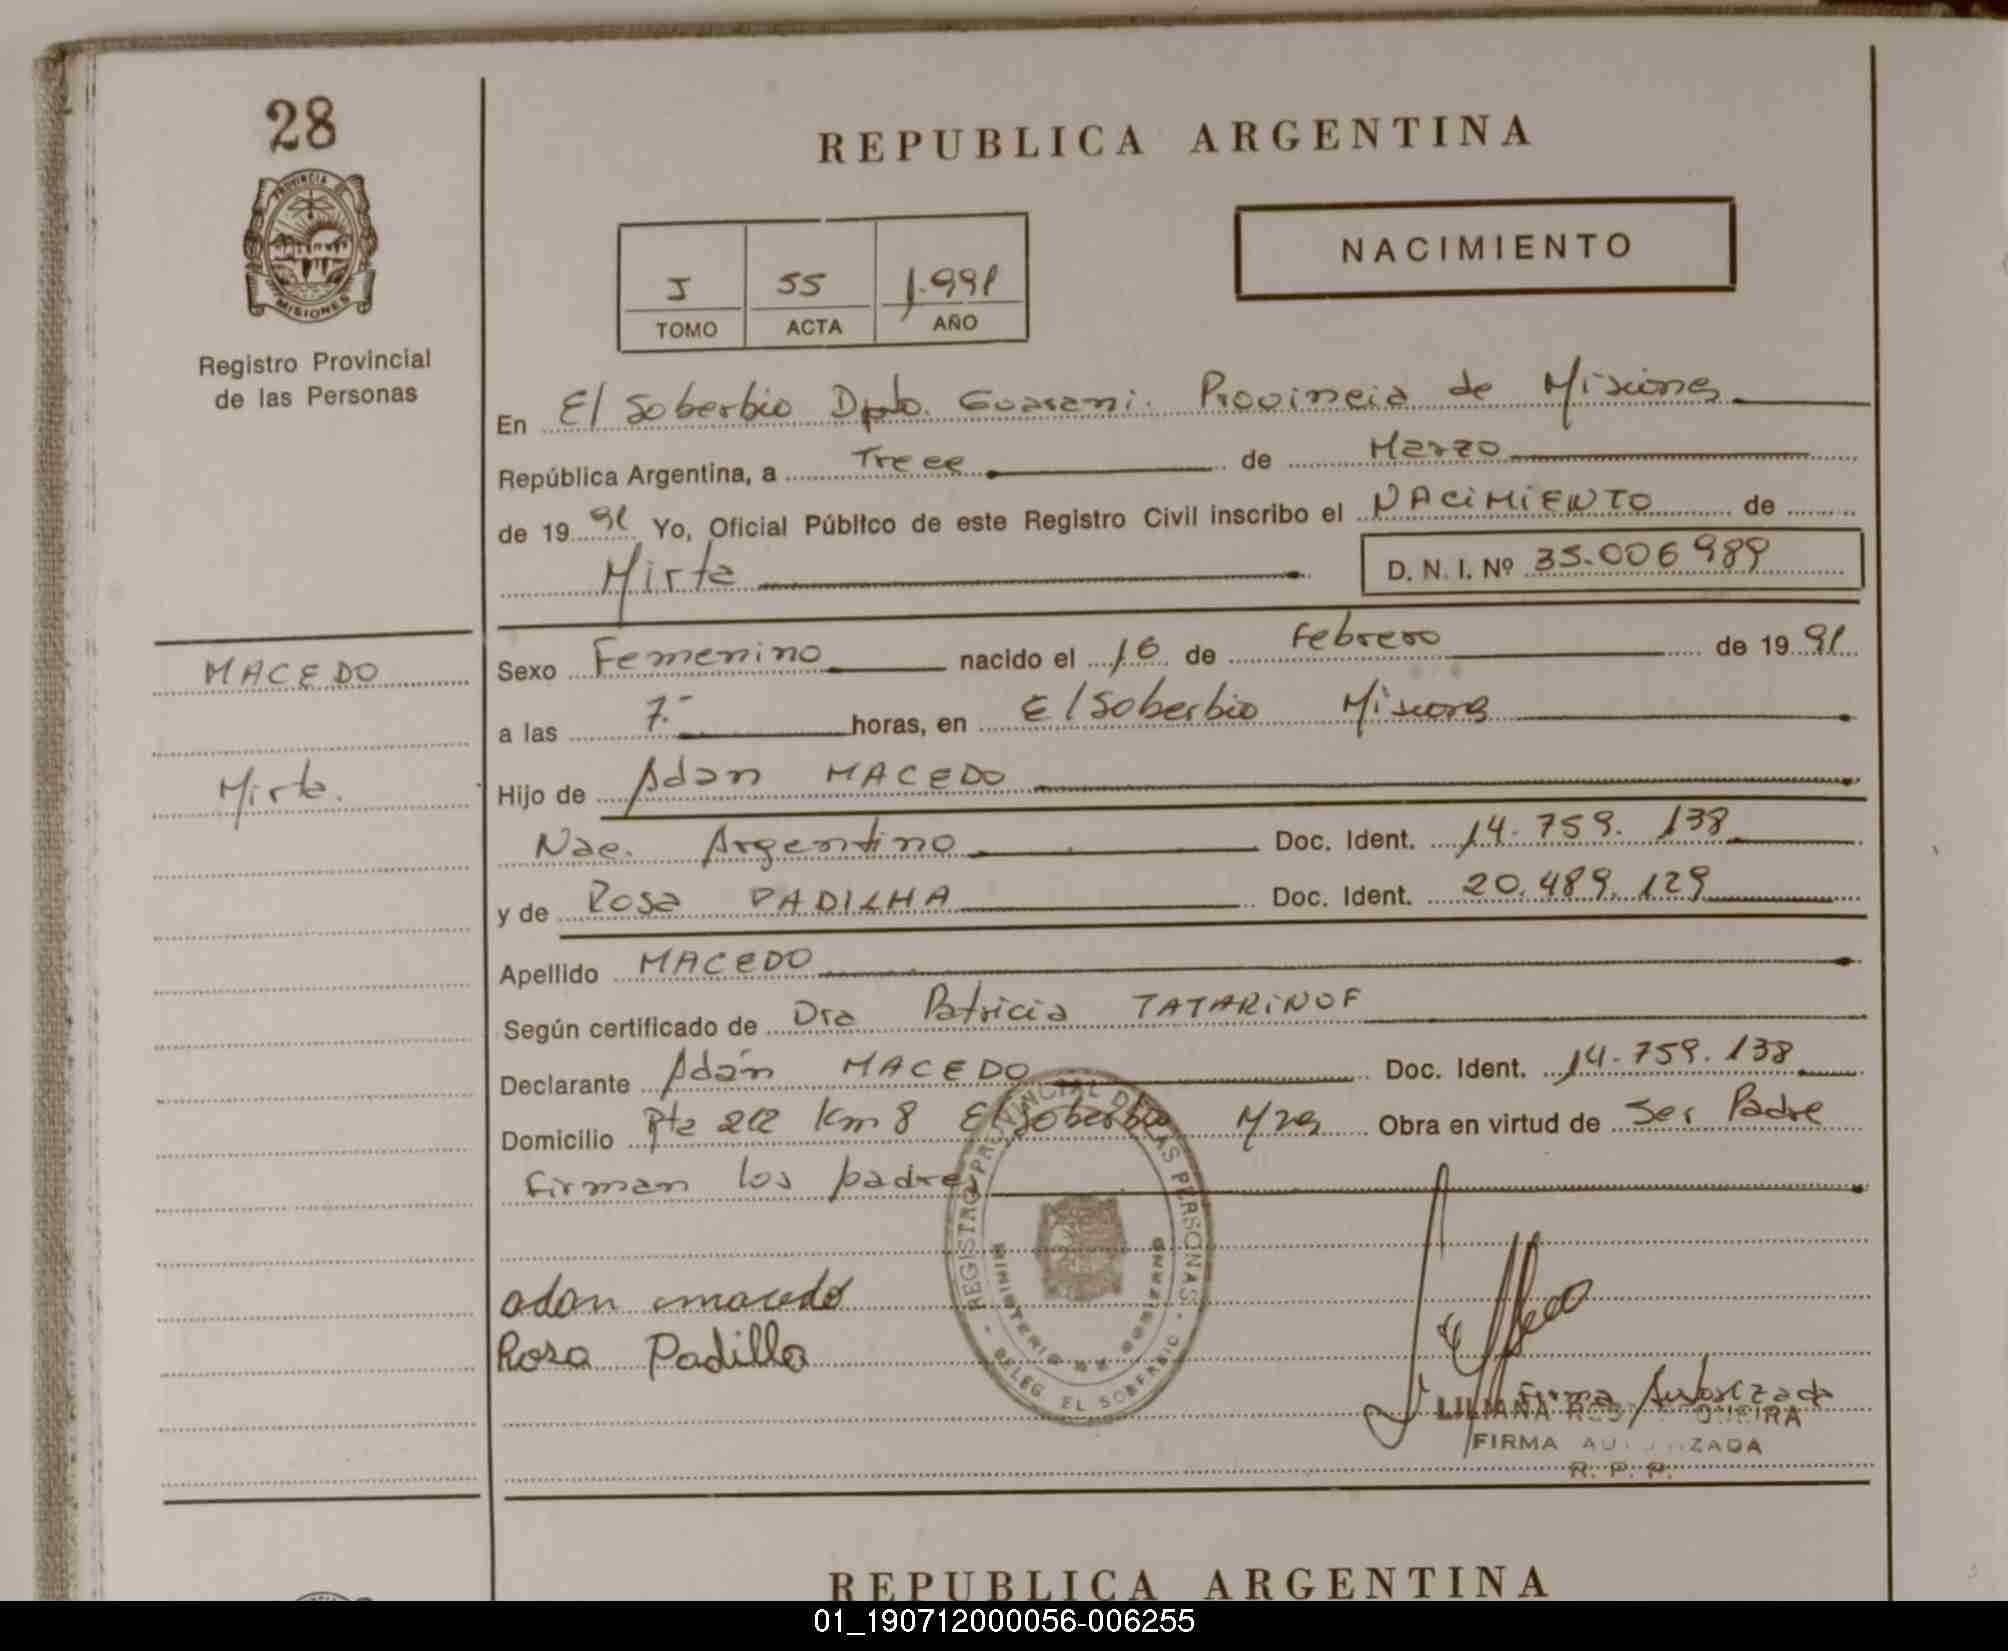 28
PROVINCIA DE
MISIONES
Registro Provincial
de las Personas
REPUBLICA ARGENTINA
NACIMIENTO
I 55 1.991
TOMO ACTA AÑO
En El Soberbio Dpto. Guarani. Provincia de Misiones
República Argentina, a Trece de Marzo
de 19 91 Yo, Oficial Público de este Registro Civil inscribo el NACIMIENTO de
Mirta
D. N. I. Nº 35.006989
MACEDO
Mirta.
Sexo Femenino nacido el 16 de Febrero de 19 91
a las 7.- horas, en El Soberbio Misiones
Hijo de Adan MACEDO
Nac. Argentino Doc. Ident. 14.759.138
y de Rosa PADILHA Doc. Ident. 20.489.129
Apellido MACEDO
Según certificado de Dra Patricia TATARINOF
Declarante Adán MACEDO Doc. Ident. 14.759.138
Domicilio Rta 212 Km 8 El Soberbio Mnes Obra en virtud de Ser Padre
Firman los padres
REGISTRO PROVINCIAL DE LAS PERSONAS
MINISTERIO DE GOBIERNO
DELEG. EL SOBERBIO
adan macedo
Rosa Padilla
Firma Autorizada
LILIANA
FIRMA AUTORIZADA
R. P. P.
REPUBLICA ARGENTINA
01_190712000056-006255